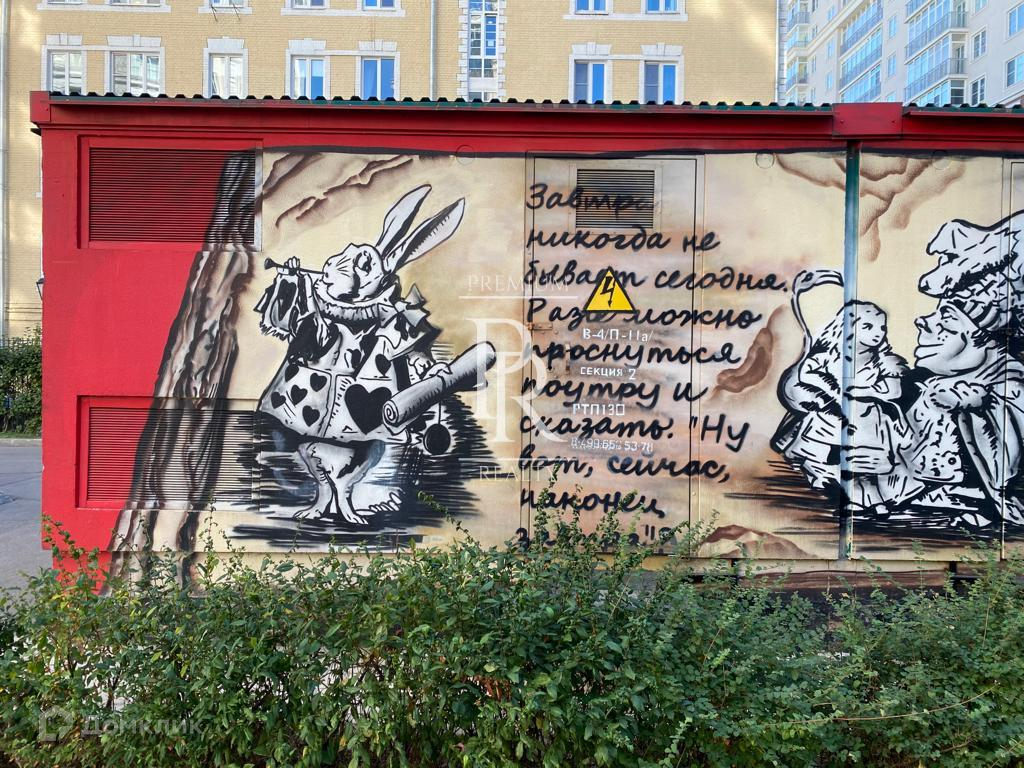 Завтра
никогда не
бывает сегодня.
Разве можно
проснуться
поутру и
сказать: "Ну
вот, сейчас,
наконец
завтра"?
В-4/П-11а/
СЕКЦИЯ 2
РТП130
PREMIUM
PR
REALTY
ДОМКЛИК